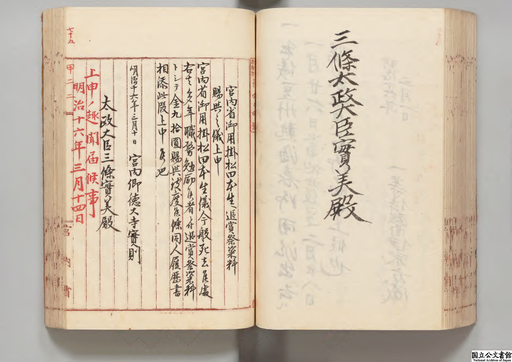 三條太政大臣實美殿
宮内省御用掛松田本生ヘ追賞祭粢料
賜與之儀上申
宮内省御用掛松田本生儀今般死去候處
右者久年職務勉励候者ニ付追賞祭粢料
トシテ金九拾圓賜與致度依テ同人履歴書
相添此段上申候也
明治十六年三月十日 宮内卿徳大寺實則
太政大臣三條實美殿
上申ノ趣聞届候事
明治十六年三月十四日
甲二二
宮内省
国立公文書館
National Archives of Japan